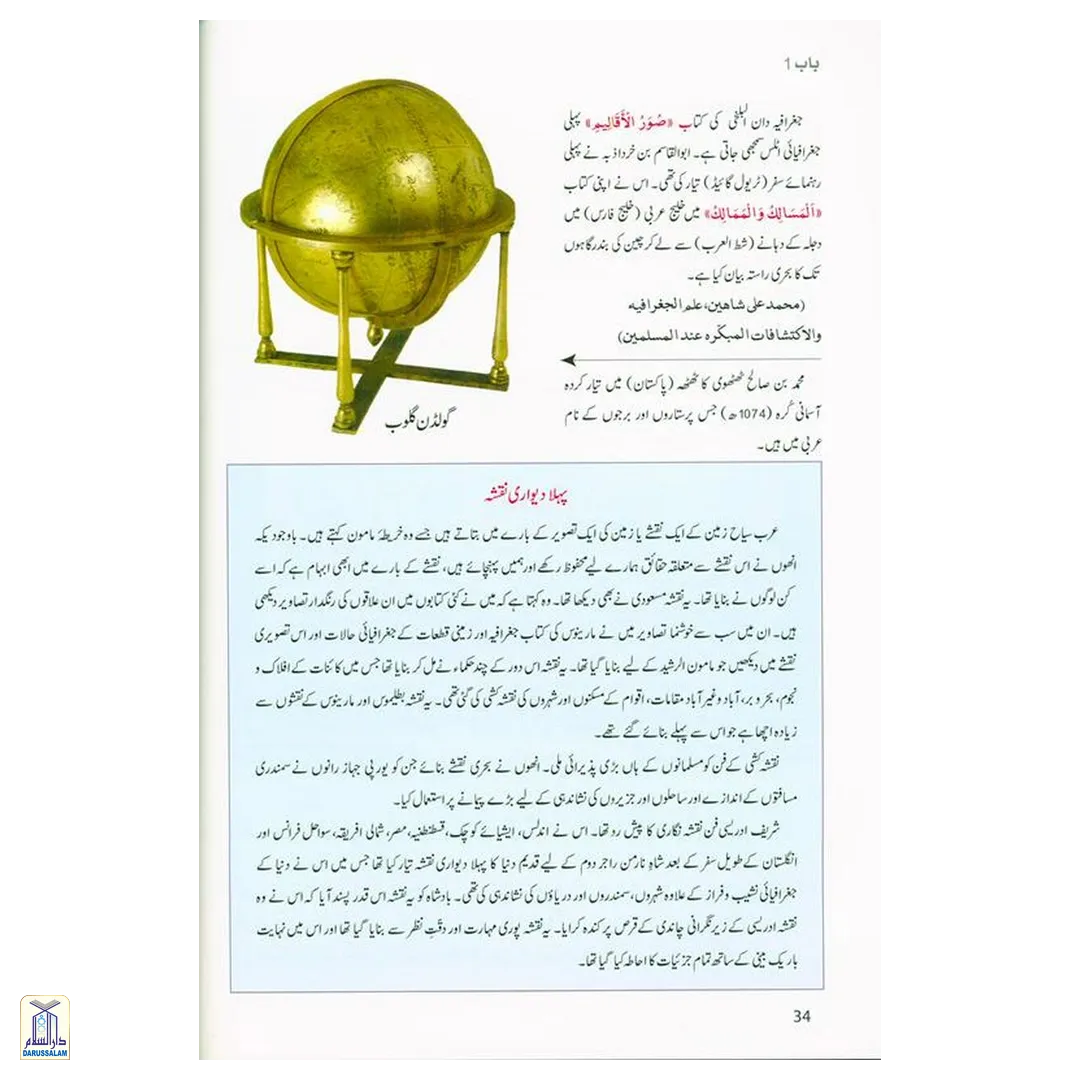 باب 1
جغرافیہ دان البلخی کی کتاب «صُوَرُ الْأَقَالِيمِ» پہلی
جغرافیائی اٹلس سمجھی جاتی ہے۔ ابوالقاسم بن خرداذبہ نے پہلی
رہنمائے سفر (ٹریول گائیڈ) تیار کی تھی۔ اس نے اپنی کتاب
«اَلْمَسَالِكُ وَالْمَمَالِكُ» میں خلیج عربی (خلیج فارس) میں
دجلہ کے دہانے (شط العرب) سے لے کر چین کی بندرگاہوں
تک کا بحری راستہ بیان کیا ہے۔
(محمد علی شاھین، علم الجغرافیه
والاکتشافات المبکّره عند المسلمین)
محمد بن صالح ٹھٹھوی کا ٹھٹھہ (پاکستان) میں تیار کردہ
آسمانی کُرہ (1074ھ) جس پر ستاروں اور برجوں کے نام
عربی میں ہیں۔
گولڈن گلوب
پہلا دیواری نقشہ
عرب سیاح زمین کے ایک نقشے یا زمین کی ایک تصویر کے بارے میں بتاتے ہیں جسے وہ خریطۂ مامون کہتے ہیں۔ باوجود یکہ
انھوں نے اس نقشے سے متعلقہ حقائق ہمارے لیے محفوظ رکھے اور ہمیں پہنچائے ہیں، نقشے کے بارے میں ابھی ابہام ہے کہ اسے
کن لوگوں نے بنایا تھا۔ یہ نقشہ مسعودی نے بھی دیکھا تھا۔ وہ کہتا ہے کہ میں نے کئی کتابوں میں ان علاقوں کی رنگدار تصاویر دیکھی
ہیں۔ ان میں سب سے خوشنما تصاویر میں نے مارینوس کی کتاب جغرافیہ اور زمینی قطعات کے جغرافیائی حالات اور اس تصویری
نقشے میں دیکھیں جو مامون الرشید کے لیے بنایا گیا تھا۔ یہ نقشہ اس دور کے چند حکماء نے مل کر بنایا تھا جس میں کائنات کے افلاک و
نجوم، بحر و بر، آباد وغیر آباد مقامات، اقوام کے مسکنوں اور شہروں کی نقشہ کشی کی گئی تھی۔ یہ نقشہ بطلیموس اور مارینوس کے نقشوں سے
زیادہ اچھا ہے جو اس سے پہلے بنائے گئے تھے۔
نقشہ کشی کے فن کو مسلمانوں کے ہاں بڑی پذیرائی ملی۔ انھوں نے بحری نقشے بنائے جن کو یورپی جہاز رانوں نے سمندری
مسافتوں کے اندازے اور ساحلوں اور جزیروں کی نشاندہی کے لیے بڑے پیمانے پر استعمال کیا۔
شریف ادریسی فن نقشہ نگاری کا پیش رو تھا۔ اس نے اندلس، ایشیائے کوچک، قسطنطنیہ، مصر، شمالی افریقہ، سواحل فرانس اور
انگلستان کے طویل سفر کے بعد شاہِ نارمن راجر دوم کے لیے قدیم دنیا کا پہلا دیواری نقشہ تیار کیا تھا جس میں اس نے دنیا کے
جغرافیائی نشیب و فراز کے علاوہ شہروں، سمندروں اور دریاؤں کی نشاندہی کی تھی۔ بادشاہ کو یہ نقشہ اس قدر پسند آیا کہ اس نے وہ
نقشہ ادریسی کے زیر نگرانی چاندی کے قرص پر کندہ کرایا۔ یہ نقشہ پوری مہارت اور دقّتِ نظر سے بنایا گیا تھا اور اس میں نہایت
باریک بینی کے ساتھ تمام جزئیات کا احاطہ کیا گیا تھا۔
34
دارالسلام
DARUSSALAM